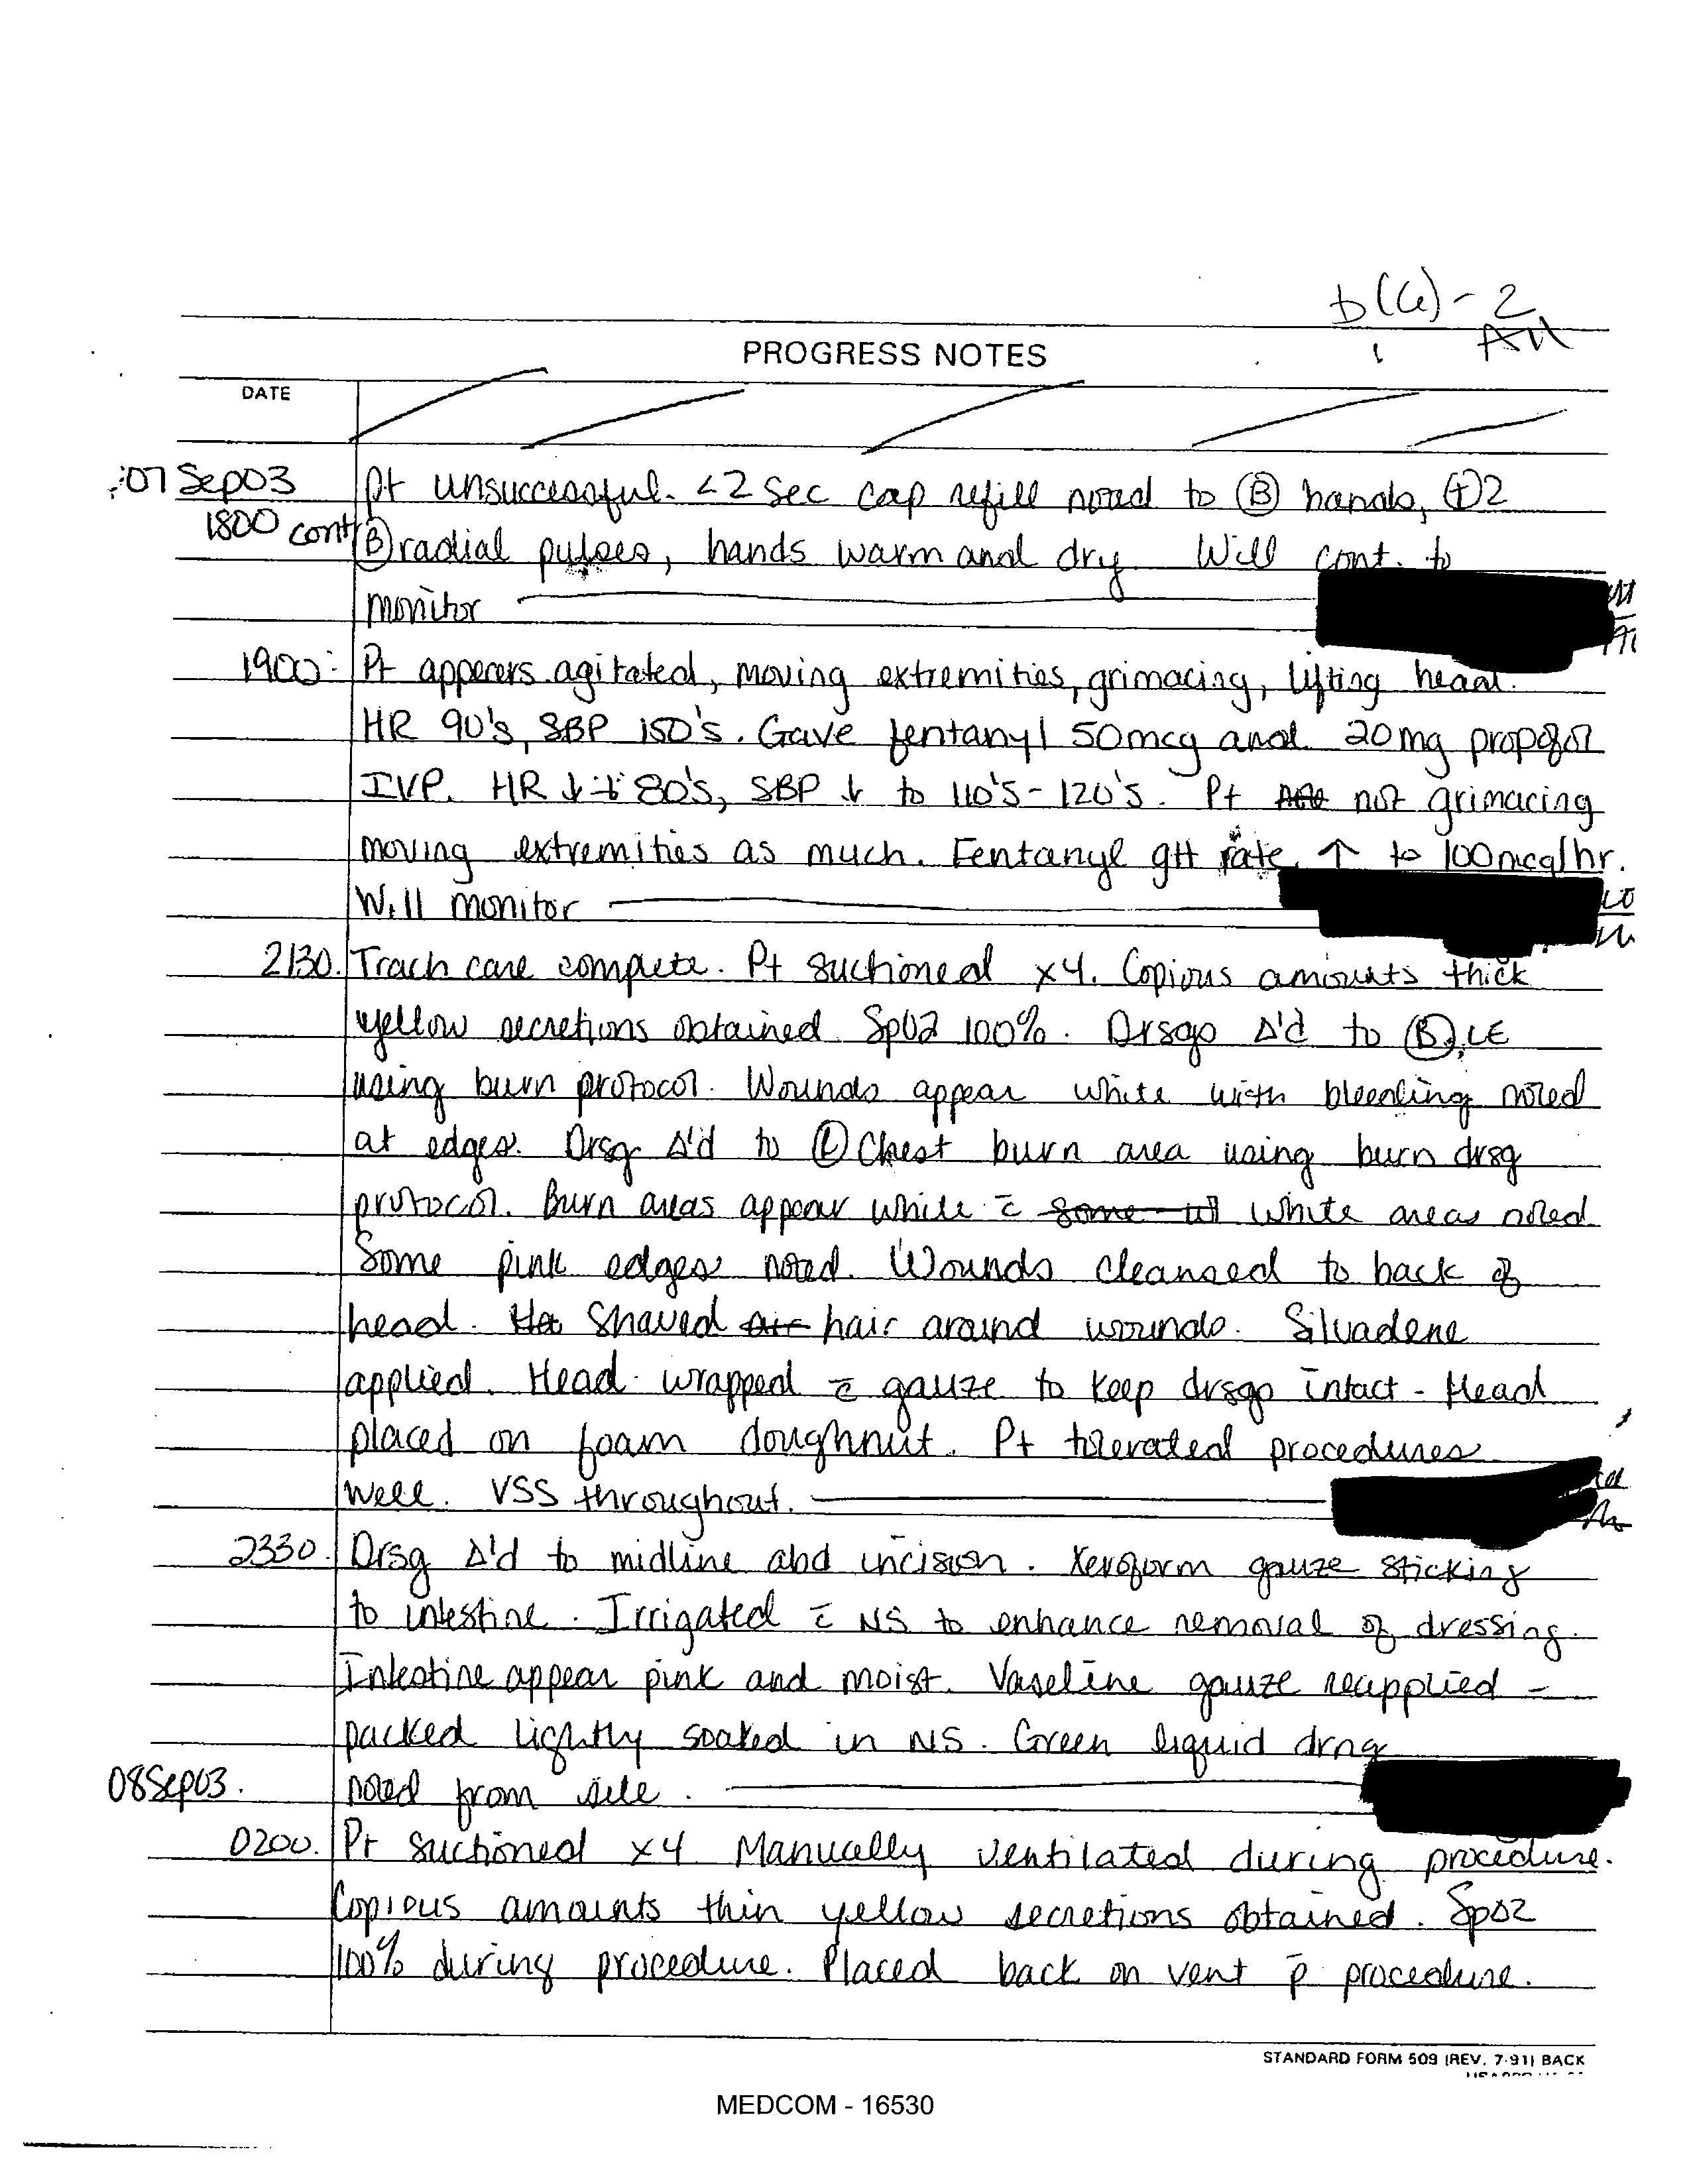 b(6)-2
All
PROGRESS NOTES
DATE
07 Sep03 pt unsuccessful. <2 sec cap refill noted to Ⓑ hands, ⊕2
1800 cont Ⓑ radial pulses, hands warm and dry. Will cont. to
monitor
1900: Pt appears agitated, moving extremities, grimacing, lifting head.
HR 90's, SBP 150's. Gave fentanyl 50mcg and 20mg propofol
IVP. HR ↓ to 80's, SBP ↓ to 110's-120's. Pt not grimacing
moving extremities as much. Fentanyl gtt rate ↑ to 100mcg/hr.
Will monitor
2130. Trach care complete. Pt suctioned x4. Copious amounts thick
yellow secretions obtained SpO2 100%. Drsgs Δ'd to Ⓑ LE
using burn protocol. Wounds appear white with bleeding noted
at edges. Drsg Δ'd to Ⓛ Chest burn area using burn drsg
protocol. Burn areas appear white c̄ some white areas noted
Some pink edges noted. Wounds cleansed to back of
head. Shaved hair around wounds. Silvadene
applied. Head wrapped c̄ gauze to keep drsgs intact - Head
placed on foam doughnut. Pt tolerated procedures
well. VSS throughout.
2330. Drsg Δ'd to midline abd incision. Xeroform gauze sticking
to intestine. Irrigated c̄ NS to enhance removal of dressing.
Intestine appear pink and moist. Vaseline gauze reapplied -
packed lightly soaked in NS. Green liquid drng
08Sep03. noted from site.
0200. Pt suctioned x4 Manually ventilated during procedure.
Copious amounts thin yellow secretions obtained. SpO2
100% during procedure. Placed back on vent p̄ procedure.
STANDARD FORM 509 (REV. 7-91) BACK
MEDCOM - 16530